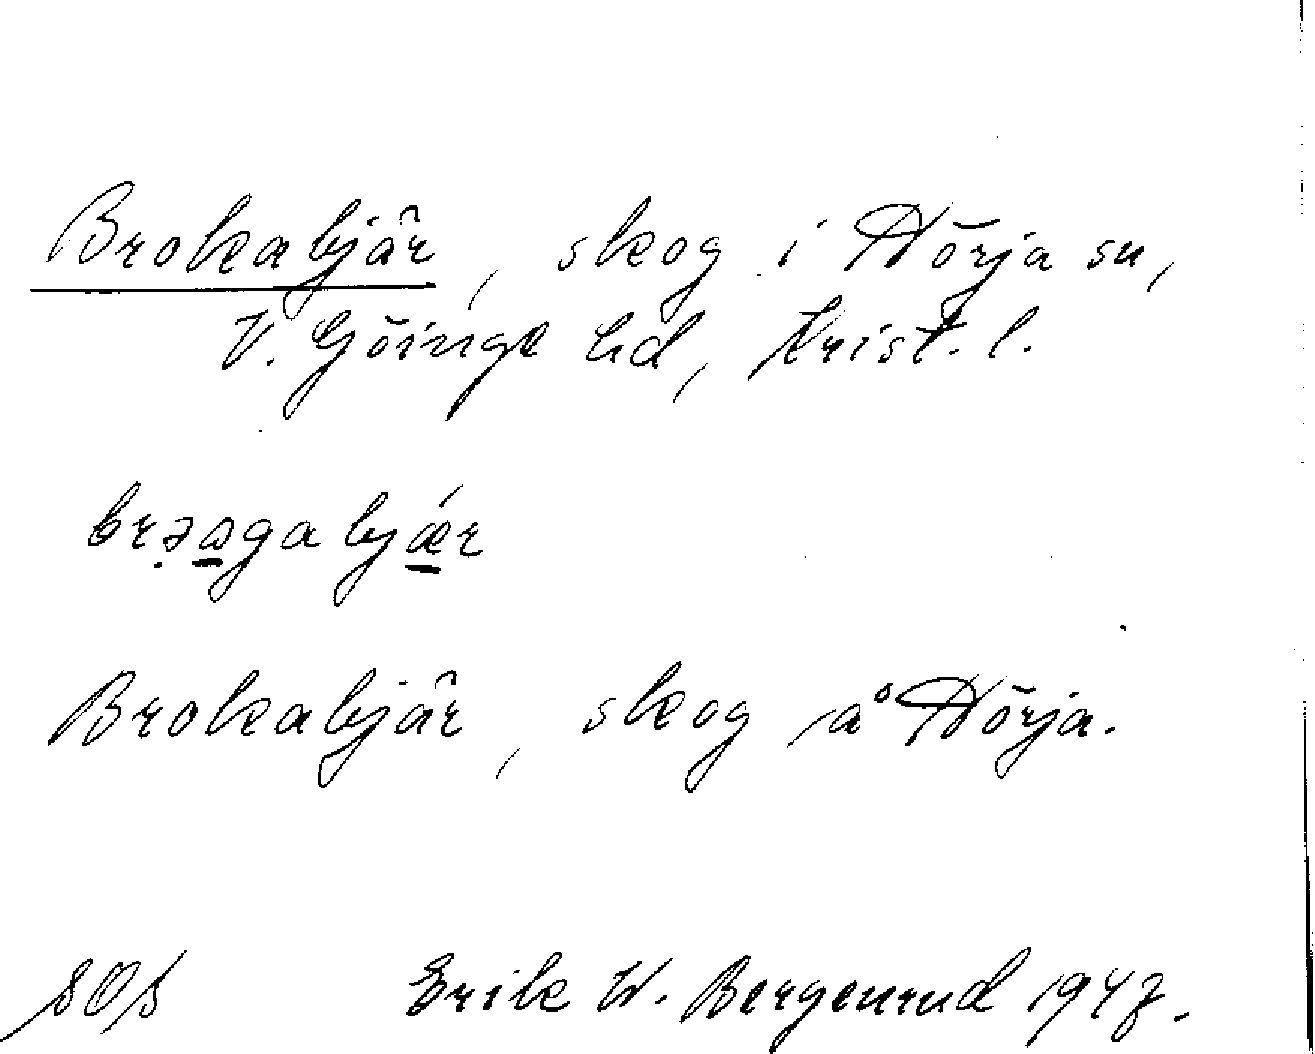 Brokabjär, skog i Nörja sn,
V. Göinge hd, Krist. l.
brəagabjǽr
Brokabjär, skog å Nörja.
Erik W. Bergenrud 1947.